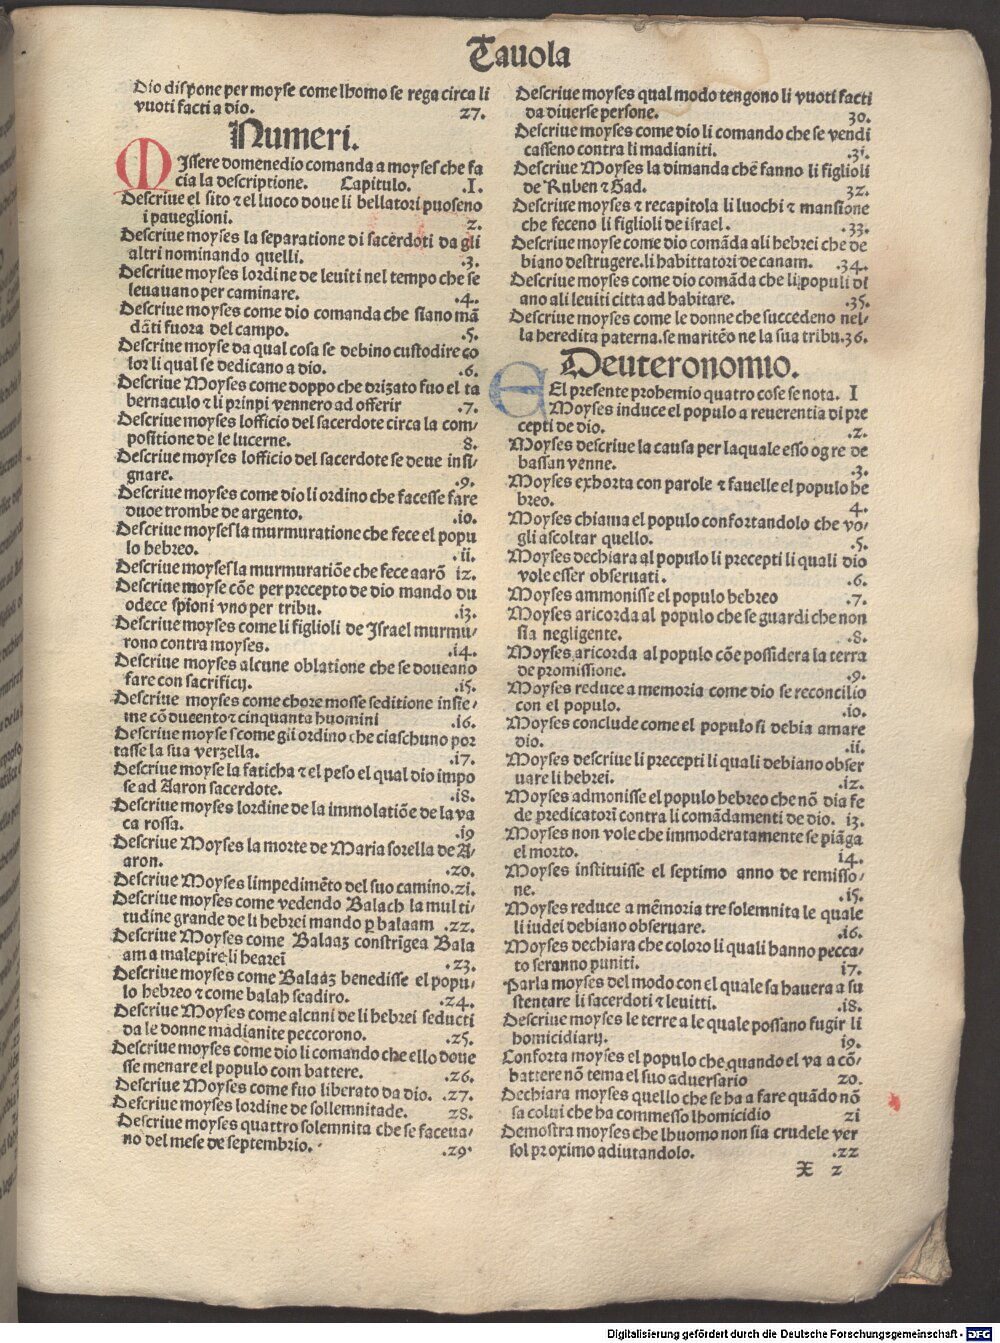 Tauola
Dio dispone per moyse come lhomo se rega circa li
vuoti facti a dio. 27.
Numeri.
MIssere domenedio comanda a moyses che fa
cia la descriptione. Capitulo. .I.
Descriue el sito ⁊ el luoco doue li bellatori puoseno
i paueglioni. 2.
Descriue moyses la separatione di sacerdoti da gli
altri nominando quelli. .3.
Descriue moyses lordine de leuiti nel tempo che se
leuauano per caminare. .4.
Descriue moyses come dio comanda che siano mā
dāti fuora del campo. .5.
Descriue moyse da qual cosa se debino custodire co
lor li qual se dedicano a dio. .6.
Descriue Moyses come doppo che drizato fuo el ta
bernaculo ⁊ li prinpi vennero ad offerir .7.
Descriue moyses lofficio del sacerdote circa la com-
positione de le lucerne. 8.
Descriue moyses lofficio del sacerdote se deue insi/
gnare. .9.
Descriue moyses come dio li ordino che facesse fare
duoe trombe de argento. .io.
Descriue moyses la murmuratione che fece el popu
lo hebreo. .ii.
Descriue moyses la murmuratiōe che fece aarō iz.
Descriue moyse cōe per precepto de dio mando du
odece spioni vno per tribu. .i3.
Descriue moyses come li figlioli de Israel murmu/
rono contra moyses. .i4.
Descriue moyses alcune oblatione che se doueano
fare con sacrificij. .i5.
Descriue moyses come chore mosse seditione insie/
me cō ducento ⁊ cinquanta huomini .i6.
Descriue moyse s come gli ordino che ciaschuno por
tasse la sua verzella. .i7.
Descriue moyse la faticha ⁊ el peso el qual dio impo
se ad Aaron sacerdote. .i8.
Descriue moyses lordine de la immolatiōe de la va
ca rossa. .i9
Descriue Moyses la morte de Maria sorella de A-
aron. .20.
Descriue Moyses limpedimēto del suo camino. zi.
Descriue moyses come vedendo Balach la multi-
tudine grande de li hebrei mando ꝑ balaam .22.
Descriue Moyses come Balaaz constrīgea Bala
am a malepire li hearei .23.
Descriue moyses come Balaaz benedisse el popu-
lo hebreo ⁊ come balah seadiro. .24.
Descriue Moyses come alcuni de li hebrei seducti
da le donne madianite peccorono. .25.
Descriue moyses come dio li comando che ello doue
sse menare el populo com battere. .26.
Descriue Moyses come fuo liberato da dio. .27.
Descriue moyses lordine de sollemnitade. 28.
Descriue moyses quattro solemnita che se faceua-
no del mese de septembrio. .29.
Descriue moyses qual modo tengono li vuoti facti
da diuerse persone. 30.
Descriue moyses come dio li comando che se vendi
casseno contra li madianiti. .3i.
Descriue Moyses la dimanda che fanno li figlioli
de Ruben ⁊ Gad. 32.
Descriue moyses ⁊ recapitola li luochi ⁊ mansione
che feceno li figlioli de israel. .33.
Descriue moyse come dio comāda ali hebrei che de
biano destrugere li habittatori de canam. .34.
Descriue moyses come dio comāda che li populi di
ano ali leuiti citta ad habitare. .35.
Descriue moyses come le donne che succedeno nel-
la heredita paterna. se maritēo ne la sua tribu. 36.
Deuteronomio.
EEl presente prohemio quatro cose se nota. I
Moyses induce el populo a reuerentia di pre
cepti de dio. .2.
Moyses descriue la causa per laquale esso og re de
bassan venne. .3.
Moyses exhorta con parole ⁊ fauelle el populo he
breo. 4.
Moyses chiama el populo confortandolo che vo-
gli ascoltar quello. .5.
Moyses dechiara al populo li precepti li quali dio
vole esser obseruati. .6.
Moyses ammonisse el populo hebreo .7.
Moyses aricorda al populo che se guardi che non
sia negligente. .8.
Moyses aricorda al populo cōe possidera la terra
de promissione. .9.
Moyses reduce a memoria come dio se reconcilio
con el populo. .io.
Moyses conclude come el populo si debia amare
dio. .ii.
Moyses descriue li precepti li quali debiano obser
uare li hebrei. .iz.
Moyses admonisse el populo hebreo che nō dia fe
de predicatori contra li comādamenti de dio. i3.
Moyses non vole che immoderatamente se piāga
el morto. i4.
Moyses instituisse el septimo anno de remisso/
ne. .i5.
Moyses reduce a mēmoria tre solemnita le quale
li iudei debiano obseruare. .i6.
Moyses dechiara che coloro li quali hanno pecca-
to seranno puniti. i7.
Parla moyses del modo con el quale sa hauera a su
stentare li sacerdoti ⁊ leuitti. .i8.
Descriue moyses le terre a le quale possano fugir li
homicidiarij. i9.
Conforta moyses el populo che quando el va a cō-
battere nō tema el suo aduersario 20.
Dechiara moyses quello che se ha a fare quādo nō
sa colui che ha commesso lhomicidio zi
Demostra moyses che lhuomo non sia crudele ver
sol proximo adiutandolo. .22
X 2
Digitalisierung gefördert durch die Deutsche Forschungsgemeinschaft - DFG